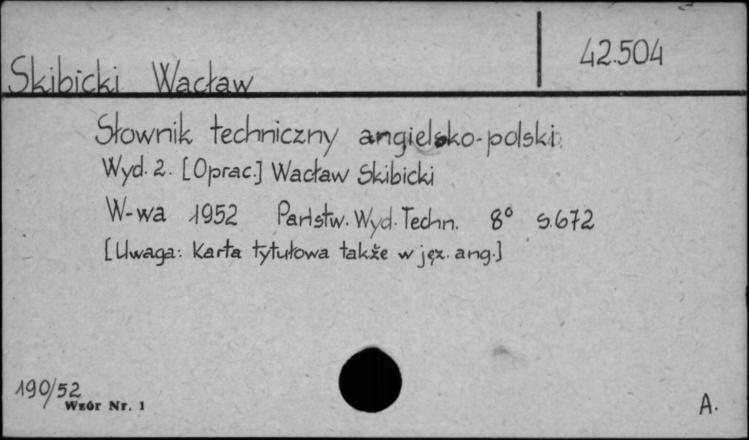 42.504
Skibicki Wacław
Słownik techniczny angielsko-polski.
Wyd. 2. [Oprac.] Wacław Skibicki
W-wa 1952 Państw. Wyd. Techn. 8° s. 672
[Uwaga: Karta tytułowa także w jęz. ang.]
190/52
Wzór Nr. 1
A.